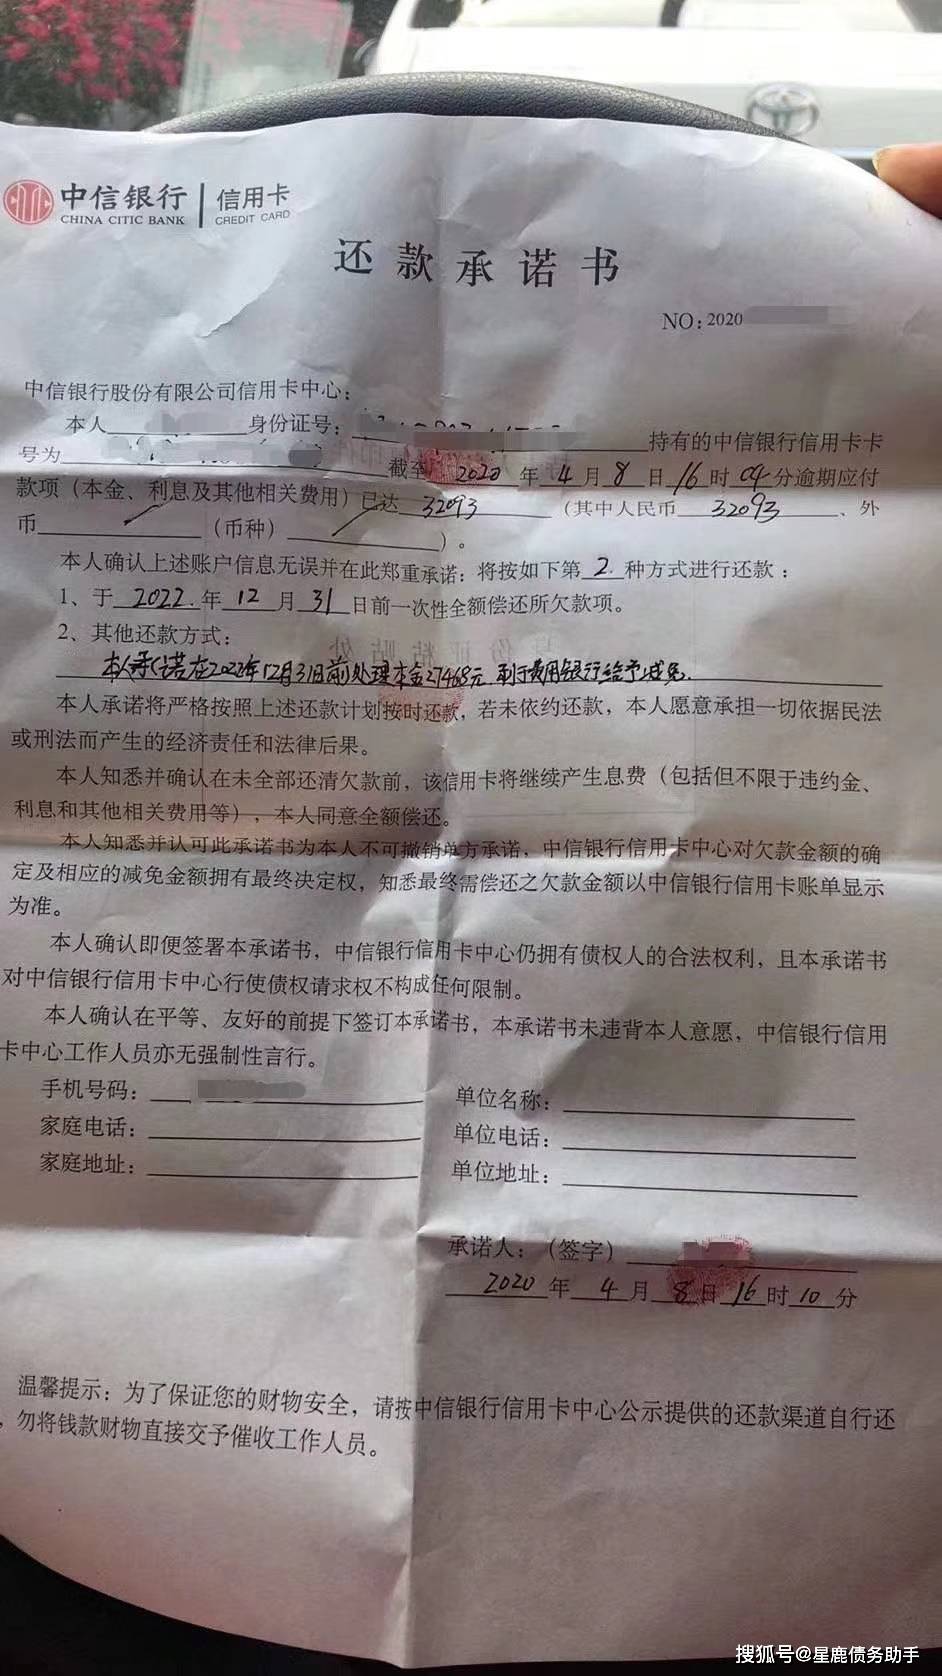 中信银行 信用卡
CHINA CITIC BANK CREDIT CARD
还款承诺书
NO:2020
中信银行股份有限公司信用卡中心:
本人 身份证号: 持有的中信银行信用卡卡
号为 截至 2020 年 4 月 8 日 16 时 04 分逾期应付
款项(本金、利息及其他相关费用)已达 32093 (其中人民币 32093 、外
币 (币种) )。
本人确认上述账户信息无误并在此郑重承诺:将按如下第 2. 种方式进行还款:
1、于 2022. 年 12 月 31 日前一次性全额偿还所欠款项。
2、其他还款方式:
本人承诺在2022年12月31日前处理本金27468元 利于费用银行给予减免.
本人承诺将严格按照上述还款计划按时还款,若未依约还款,本人愿意承担一切依据民法
或刑法而产生的经济责任和法律后果。
本人知悉并确认在未全部还清欠款前,该信用卡将继续产生息费(包括但不限于违约金、
利息和其他相关费用等),本人同意全额偿还。
本人知悉并认可此承诺书为本人不可撤销单方承诺,中信银行信用卡中心对欠款金额的确
定及相应的减免金额拥有最终决定权,知悉最终需偿还之欠款金额以中信银行信用卡账单显示
为准。
本人确认即便签署本承诺书,中信银行信用卡中心仍拥有债权人的合法权利,且本承诺书
对中信银行信用卡中心行使债权请求权不构成任何限制。
本人确认在平等、友好的前提下签订本承诺书,本承诺书未违背本人意愿,中信银行信用
卡中心工作人员亦无强制性言行。
手机号码: 单位名称:
家庭电话: 单位电话:
家庭地址: 单位地址:
承诺人:(签字)
2020 年 4 月 8 日 16 时 10 分
温馨提示:为了保证您的财物安全,请按中信银行信用卡中心公示提供的还款渠道自行还
,勿将钱款财物直接交予催收工作人员。
搜狐号@星鹿债务助手